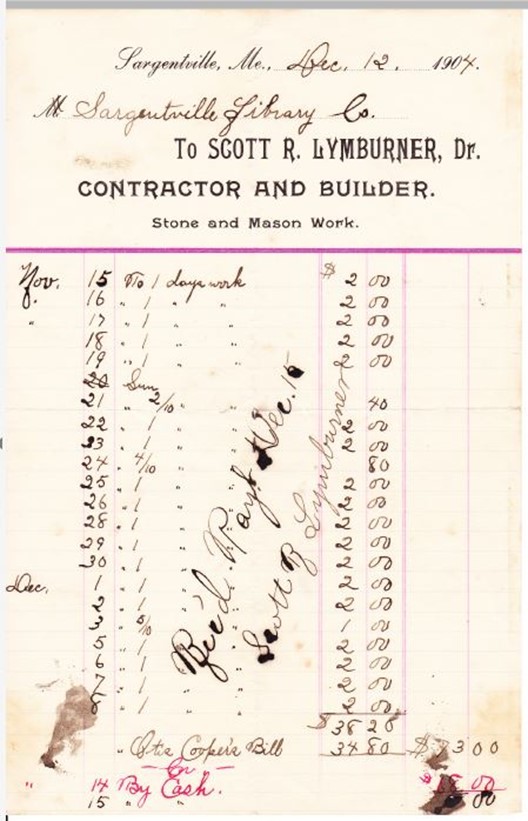 Sargentville, Me., Dec. 12. 1904.
M Sargentville Library Co.
To SCOTT R. LYMBURNER, Dr.
CONTRACTOR AND BUILDER.
Stone and Mason Work.
Nov. 15 To 1 days work $ 2 00
16 " 1 " " 2 00
" 17 " 1 " " 2 00
18 " 1 2 00
19 " 1 2 00
20 Sun
21 " 2/10 " 40
22 " 1 " 2 00
23 " 1 " 2 00
24 " 4/10 " 80
25 " 1 " 2 00
26 " 1 " 2 00
28 " 1 " 2 00
29 " 1 " 2 00
30 " 1 " 2 00
Dec. 1 " 1 " 2 00
2 " 1 " 2 00
3 " 5/10 " 1 00
5 " 1 " 2 00
6 " 1 " 2 00
7 " 1 " 2 00
8 " 1 " 2 00
Rec'd. Payt Dec. 15
Scott R Lymburner
$ 38 20
" Otis Cooper's Bill 34 80 $ 73 00
Cr
" 14 By Cash. $ 00
15 " " 00